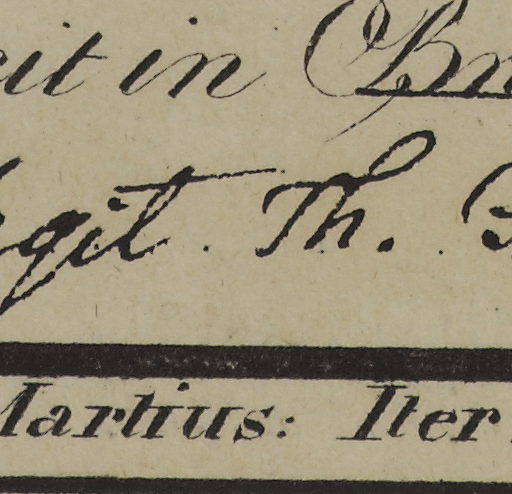 eit in Br
git Th.
Martius: Iter